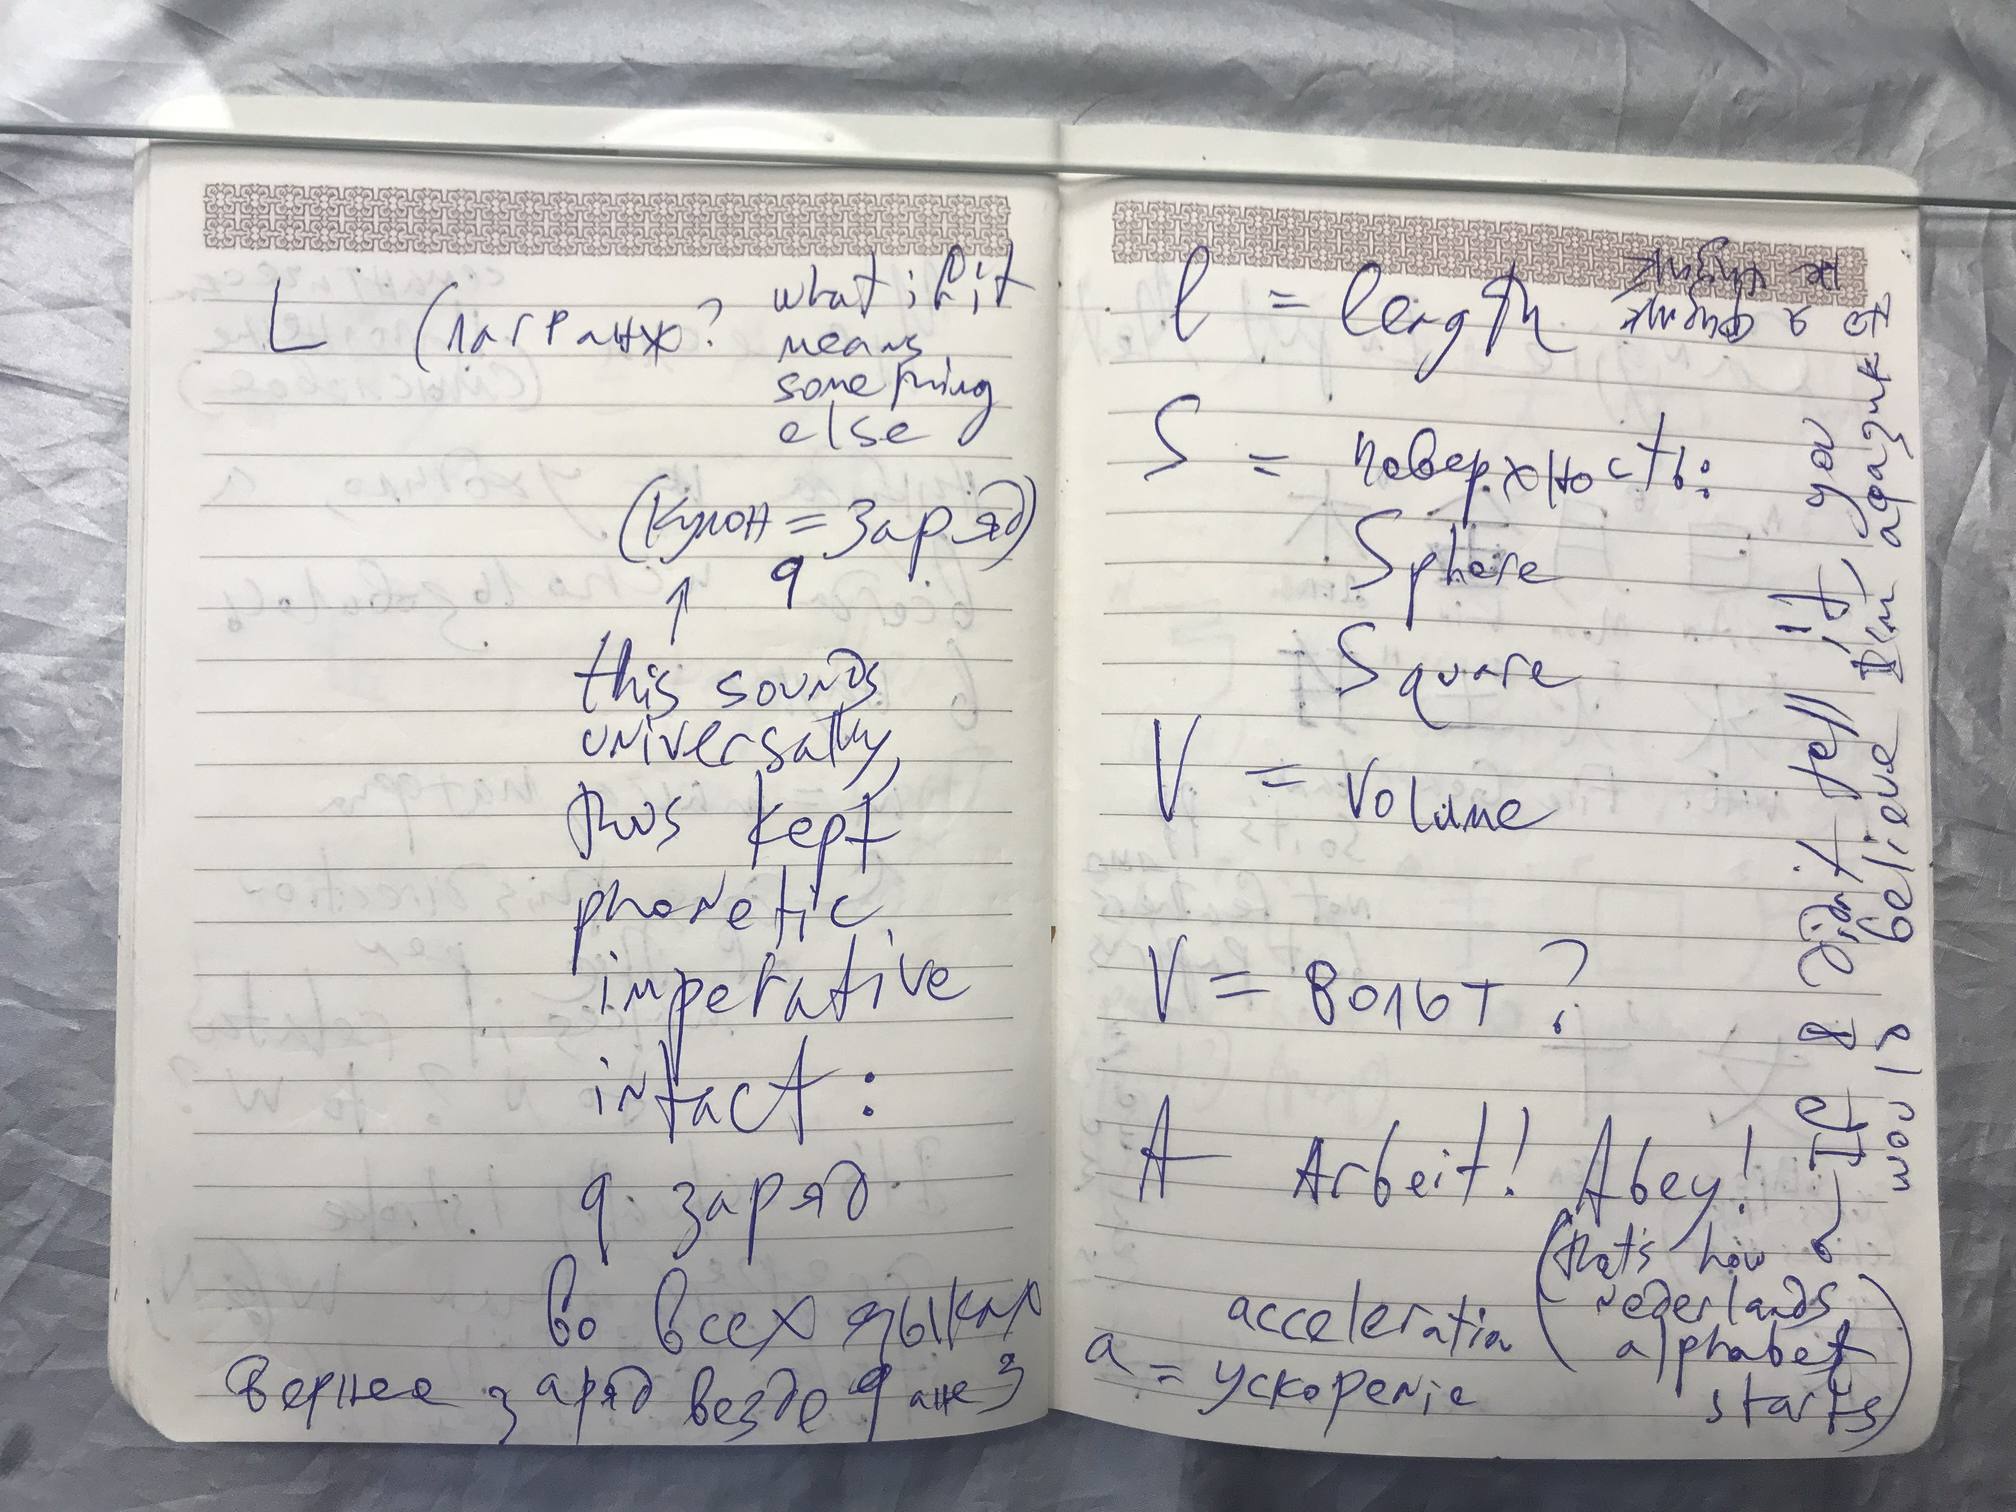 L (лагранж? what if it
means
something
else
(кулон = заряд)
q
↑
this sounds
universally,
thus kept
phonetic
imperative
intact:
q заряд
во всех языках
вернее заряд везде q а не з
l = length
S = поверхность:
Sphere
Square
V = Volume
V = вольт?
A Arbeit! Abey!
(that's how
nederlands
alphabet
starts)
acceleration
a = ускорение
If I didn't tell it you
would believe